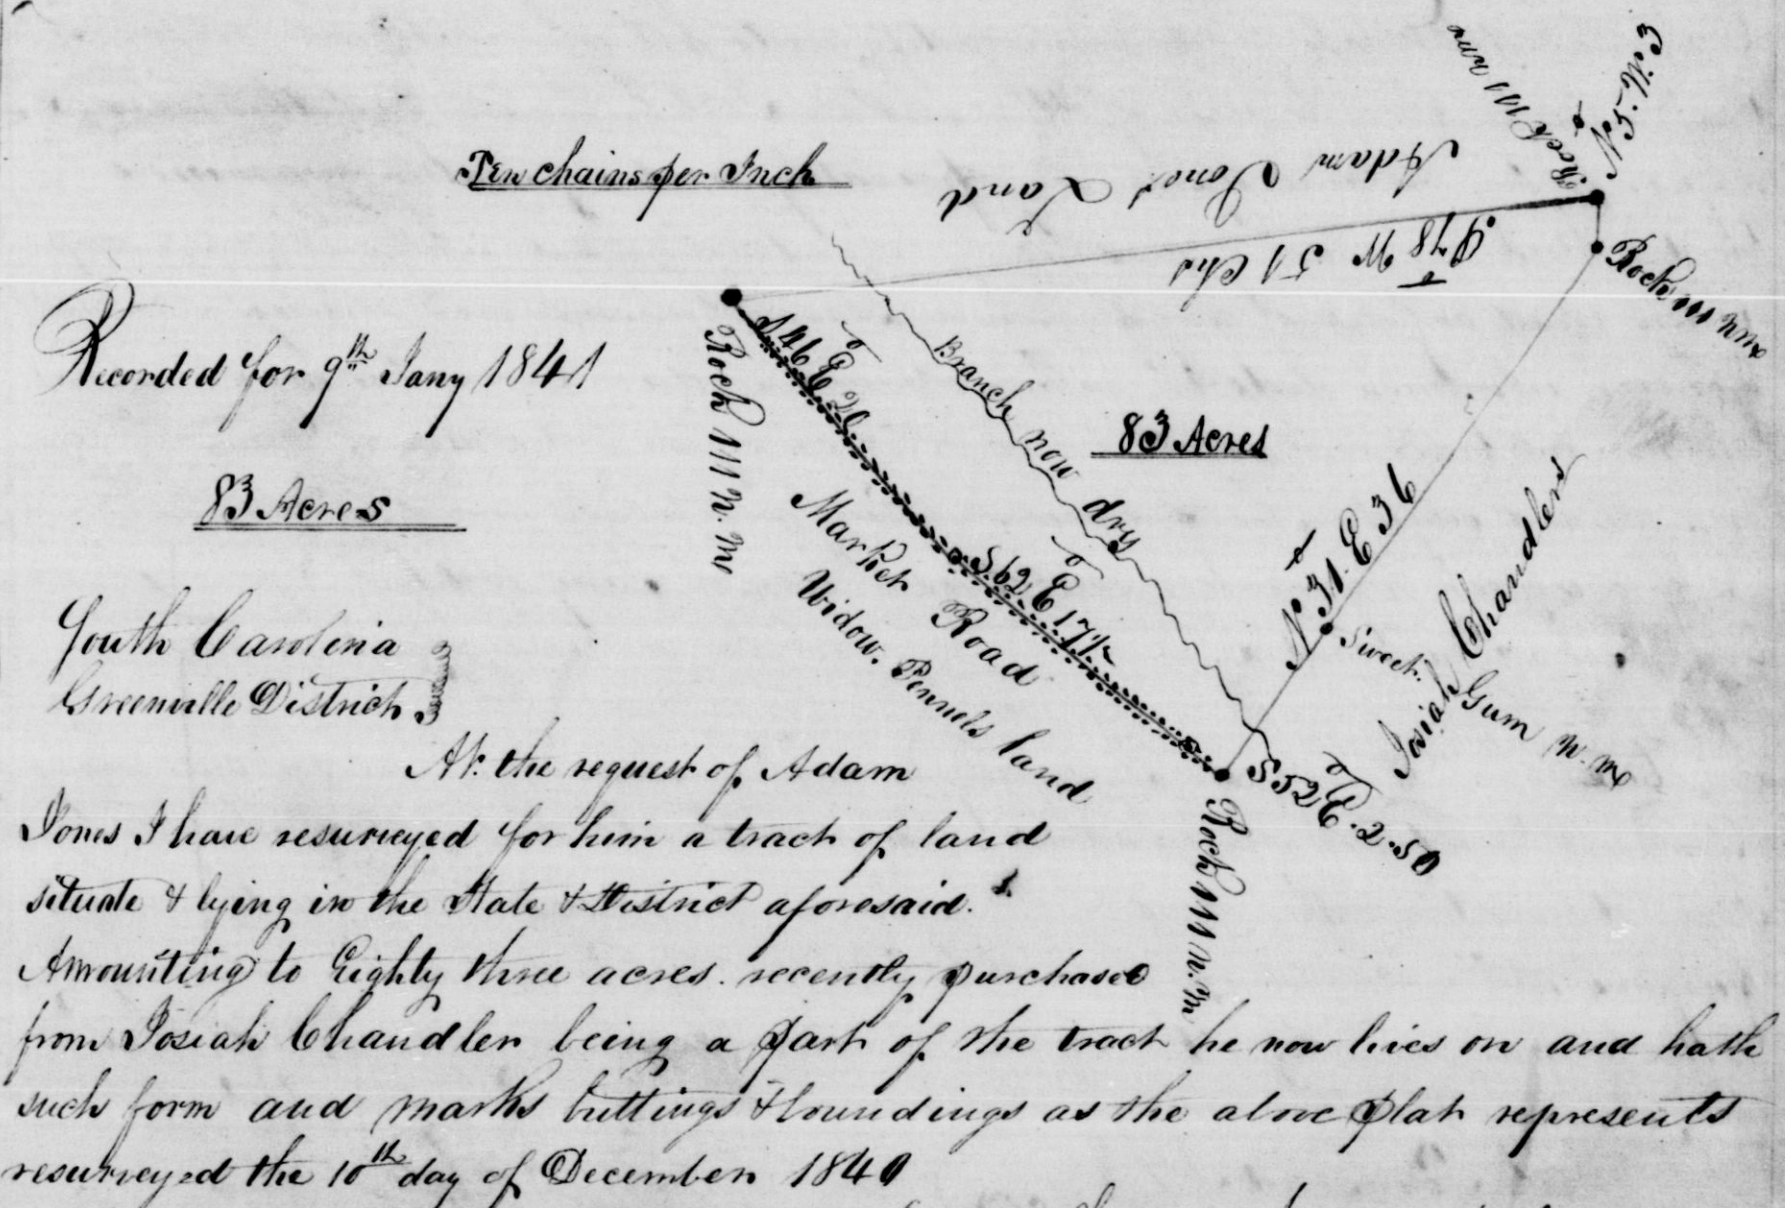 Ten chains per Inch
Rock 111 nm
N 5 W. 3
Adam Jones Land
S 78 W 51 Chs
Rock 111 nm
Recorded for 9th Jany 1841
S 46 E 20
Rock 111 n. m
Branch now dry
83 Acres
83 Acres
Market Road
S 62 E 17½
Widow. Pennels land
N 31. E 36
Josiah Chandlers
Sweet. Gum n. m
South Carolina
Greenville District
S 52 E. 2.50
Rock 111 n. m
At the request of Adam
Jones I have resurveyed for him a tract of land
situate & lying in the State & District aforesaid.
Amounting to Eighty three acres. recently purchased
from Josiah Chandler being a part of the tract he now lives on and hath
such form and marks buttings & boundings as the above plat represents
resurveyed the 10th day of December 1840